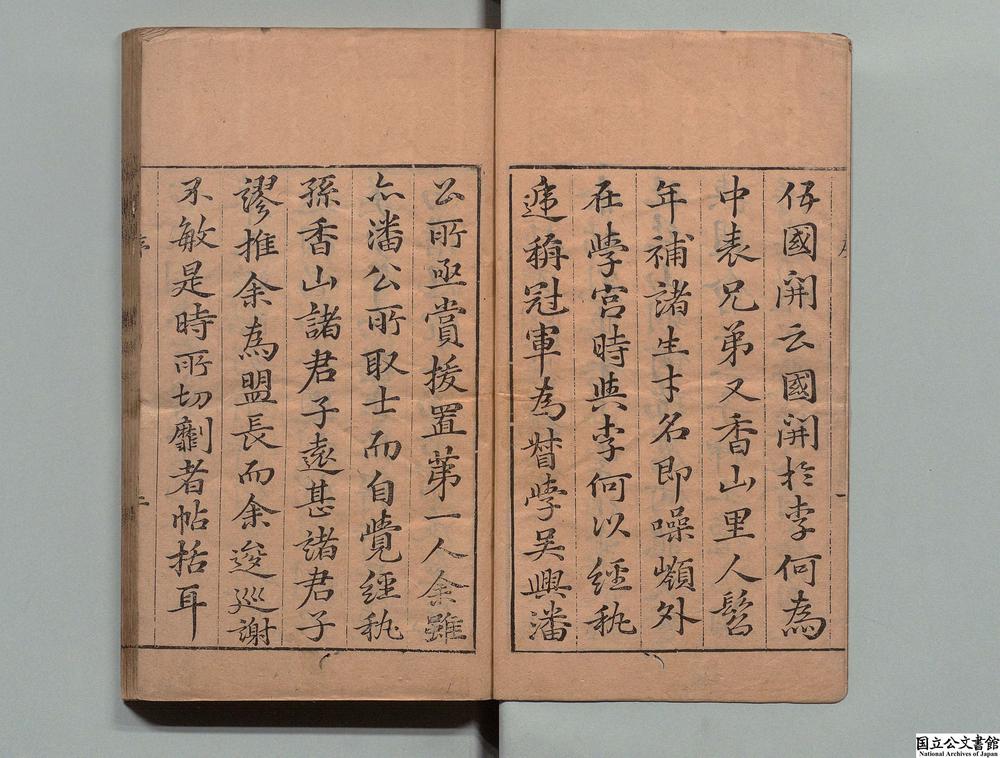 伍國開云國開於李何為
中表兄弟又香山里人髫
年補諸生才名即噪嶺外
在學宮時與李何以經埶
遞稱冠軍為督學吳興潘
公所亟賞援置第一人余雖
亦潘公所取士而自覺經埶
孫香山諸君子遠甚諸君子
謬推余為盟長而余逡巡謝
不敏是時所切劘者帖括耳
序
二
国立公文書館
National Archives of Japan